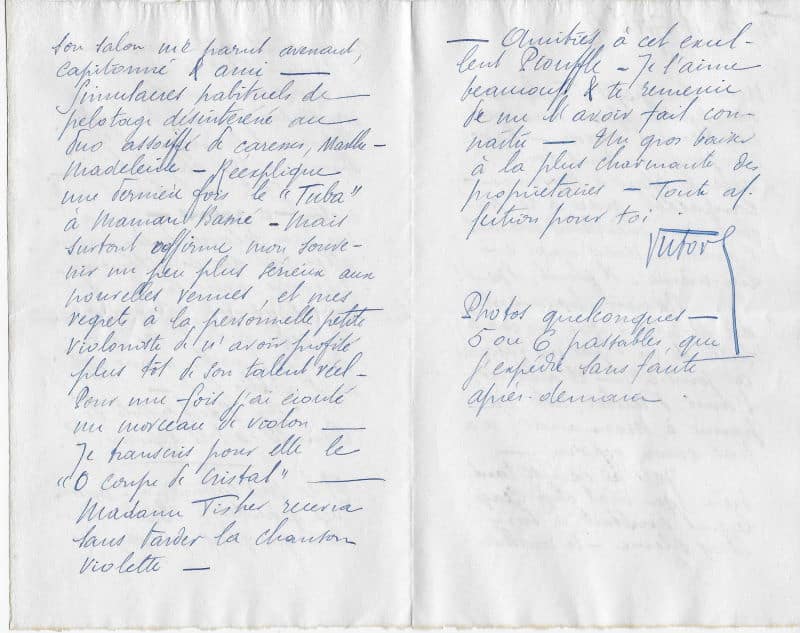 son salon me parut avenant,
capitonné & ami —
Simulacres habituels de
pelotage désintéressé au
duo assoiffé de caresses, Marthe-
Madeleine — Réexplique
une dernière fois le "Tuba"
à Maman Basié — Mais
surtout affirme mon souve-
nir un peu plus sérieux aux
nouvelles venues, et mes
regrets à la personnelle petite
violoniste de n'avoir profité
plus tôt de son talent réel —
Pour une fois j'ai écouté
un morceau de violon —
Je transcris pour elle le
"O coupe de cristal" —
Madame Fisher recevra
sans tarder la chanson
violette —
— Amitiés à cet excel-
lent Plouffe — Je l'aime
beaucoup & te remercie
de me l'avoir fait con-
naître — Un gros baiser
à la plus charmante des
propriétaires — Toute af-
fection pour toi
Photos quelconques —
5 ou 6 passables, que
j'expédie sans faute
après-demain.